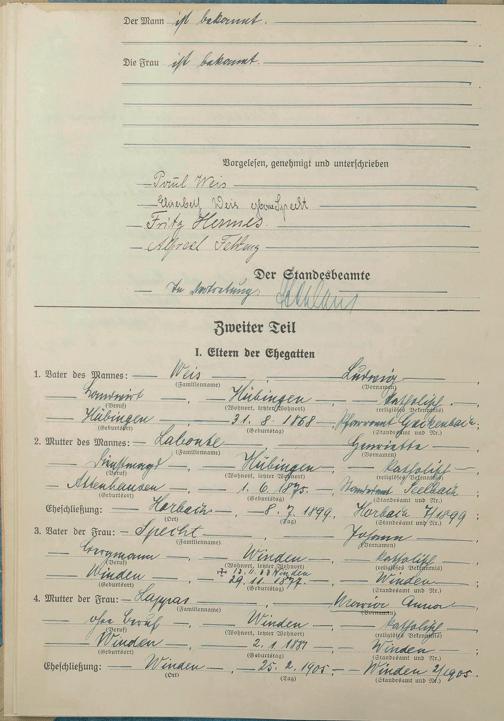 Der Mann ist bekannt.
Die Frau ist bekannt.
Vorgelesen, genehmigt und unterschrieben
Paul Weis
Weis geb. Specht
Fritz Hermes.
Alfred
Der Standesbeamte
In Vertretung:
Zweiter Teil
I. Eltern der Ehegatten
1. Vater des Mannes: — Weis —, — Ludwig —,
(Familienname) (Vornamen)
— Landwirt —, — Hübingen —, — katholisch —,
(Beruf) (Wohnort, letzter Wohnort) (religiöses Bekenntnis)
— Hübingen —, 31. 8. 1868, Pfarramt Gackenbach;
(Geburtsort) (Geburtstag) (Standesamt und Nr.)
2. Mutter des Mannes: — Labonte —, — Henriette —,
(Familienname) (Vornamen)
— Dienstmagd —, — Hübingen —, — katholisch —,
(Beruf) (Wohnort, letzter Wohnort) (religiöses Bekenntnis)
— Attenhausen —, — 1. 6. 1875, Standesamt Seelbach;
(Geburtsort) (Geburtstag) (Standesamt und Nr.)
Eheschließung: — Horbach —, — 8. 7. 1899, Horbach 7/1899;
(Ort) (Tag) (Standesamt und Nr.)
3. Vater der Frau: — Specht —, — Johann —,
(Familienname) (Vornamen)
— Bergmann —, — Winden —, — katholisch —,
(Beruf) (Wohnort, letzter Wohnort) (religiöses Bekenntnis)
Winden
— Winden —, 29. 11. 1877, — Winden —;
(Geburtsort) (Geburtstag) (Standesamt und Nr.)
4. Mutter der Frau: — Lappas —, — Maria Anna —,
(Familienname) (Vornamen)
— ohne Beruf —, — Winden —, — katholisch —,
(Beruf) (Wohnort, letzter Wohnort) (religiöses Bekenntnis)
— Winden —, — 2. 1. 1881 —, — Winden —;
(Geburtsort) (Geburtstag) (Standesamt und Nr.)
Eheschließung: — Winden —, — 25. 2. 1905, — Winden 2/1905.
(Ort) (Tag) (Standesamt und Nr.)